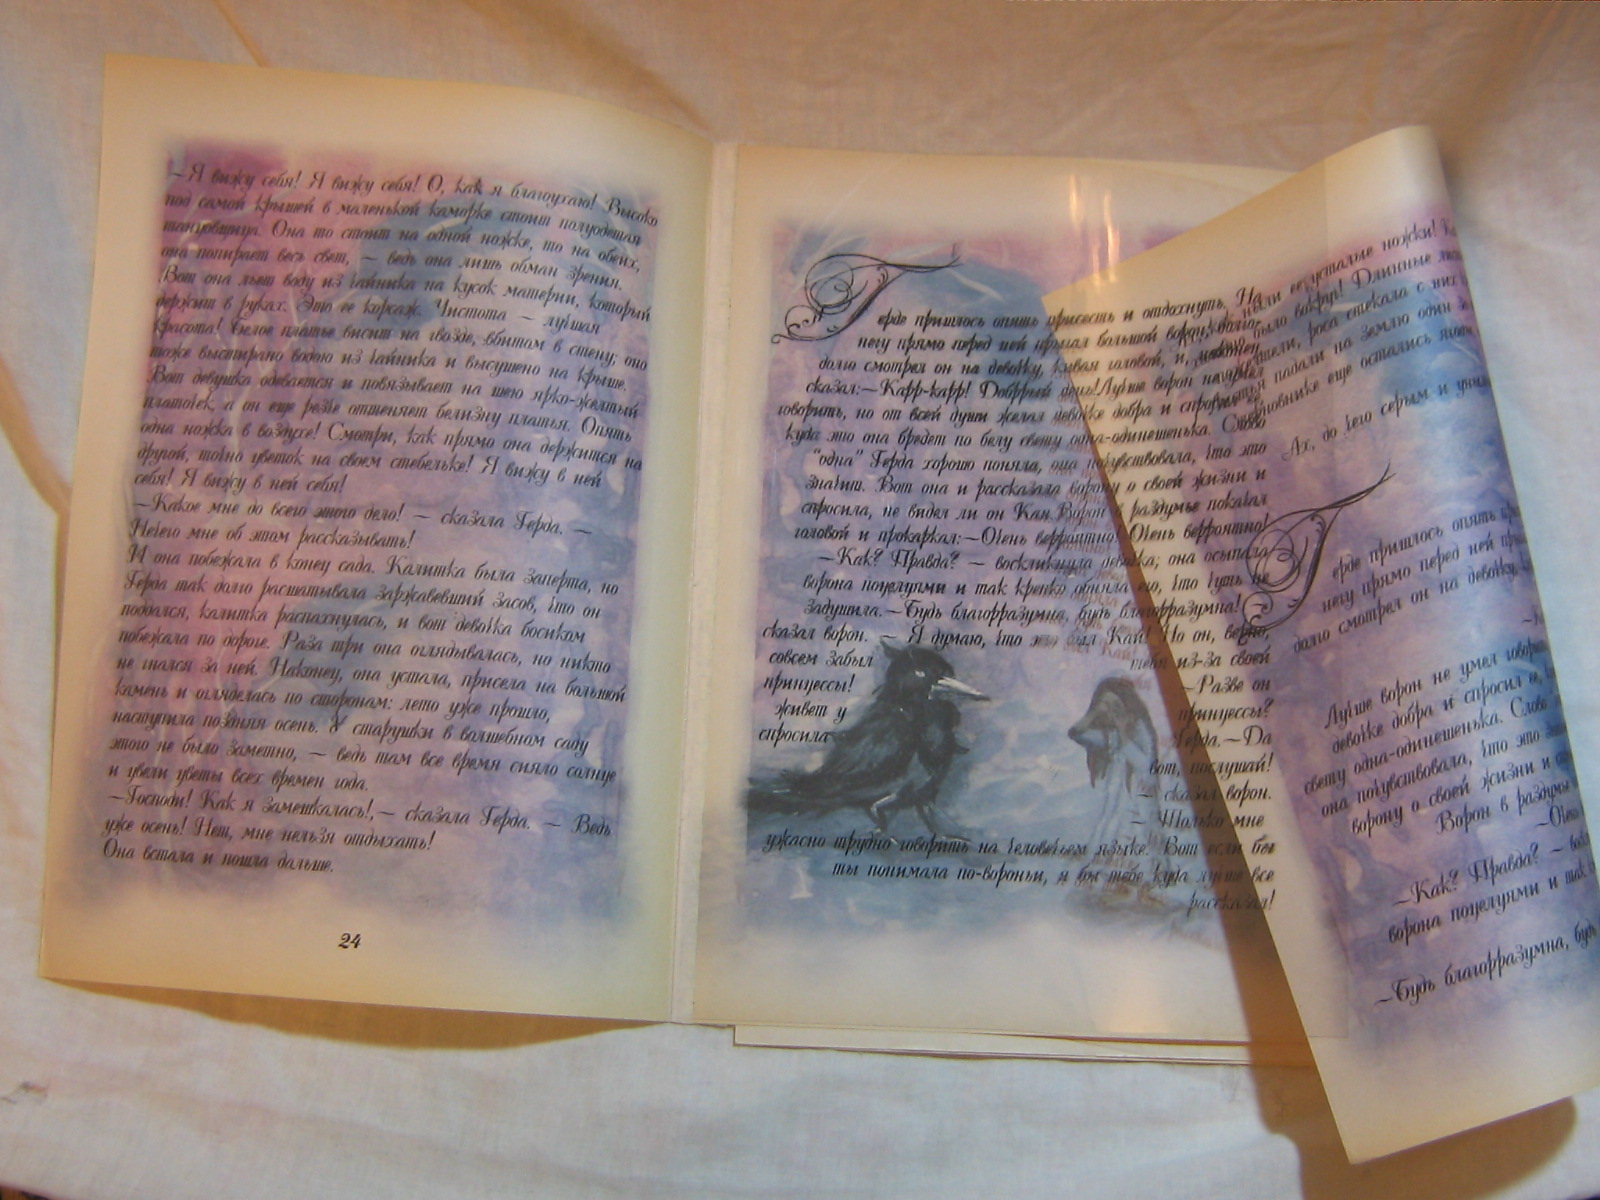 —Я вижу себя! Я вижу себя! О, как я благоухаю! Высоко
под самой крышей в маленькой каморке стоит полуодетая
танцовщица. Она то стоит на одной ножке, то на обеих,
она попирает весь свет, — ведь она лишь обман зрения.
Вот она льет воду из чайника на кусок материи, который
держит в руках. Это ее корсаж. Чистота — лучшая
красота! Белое платье висит на гвозде, вбитом в стену; оно
тоже выстирано водою из чайника и высушено на крыше.
Вот девушка одевается и повязывает на шею ярко-желтый
платочек, а он еще резче оттеняет белизну платья. Опять
одна ножка в воздухе! Смотри, как прямо она держится на
другой, точно цветок на своем стебельке! Я вижу в ней
себя! Я вижу в ней себя!
—Какое мне до всего этого дело! — сказала Герда. —
Нечего мне об этом рассказывать!
И она побежала в конец сада. Калитка была заперта, но
Герда так долго расшатывала заржавевший засов, что он
поддался, калитка распахнулась, и вот девочка босиком
побежала по дороге. Раза три она оглядывалась, но никто
не гнался за ней. Наконец, она устала, присела на большой
камень и огляделась по сторонам: лето уже прошло,
наступила поздняя осень. У старушки в волшебном саду
этого не было заметно, — ведь там все время сияло солнце
и цвели цветы всех времен года.
—Господи! Как я замешкалась!,— сказала Герда. — Ведь
уже осень! Нет, мне нельзя отдыхать!
Она встала и пошла дальше.
24
Герде пришлось опять присесть и отдохнуть. На
снегу прямо перед ней прыгал большой ворон;
долго смотрел он на девочку, кивая головой, и, наконец
сказал:—Карр-карр! Добррый день!Лучше ворон не умел
говорить, но от всей души желал девочке добра и спросил
куда это она бредет по белу свету одна-одинешенька. Слово
"одна" Герда хорошо поняла, она почувствовала, что это
значит. Вот она и рассказала ворону о своей жизни и
спросила, не видел ли он Кая.Ворон в раздумье покачал
головой и прокаркал:—Очень верроятно! Очень верроятно!
—Как? Правда? — воскликнула девочка; она осыпала
ворона поцелуями и так крепко обняла его, что чуть не
задушила.—Будь благорразумна, будь благорразумна! —
сказал ворон. — Я думаю, что это был Кай! Но он, верно,
совсем забыл тебя из-за своей
принцессы! —Разве он
живет у принцессы?
спросила Герда.—Да
вот, послушай!
— сказал ворон.
— Только мне
ужасно трудно говорить на человечьем языке. Вот если бы
ты понимала по-вороньи, я бы тебе куда лучше все
рассказал!
ныли ее усталые ножки!
было вокруг! Длинные
роса стекала с них
падали на землю один
остались
Ах, до чего серым и
Герде пришлось опять
снегу прямо перед ней
долго смотрел он на девочку,
Лучше ворон не умел
девочке добра и спросил ее,
свету одна-одинешенька. Слово
она почувствовала, что это
ворону о своей жизни и
Ворон в раздумье
—Очень
—Как? Правда? —
ворона поцелуями и так
—Будь благорразумна,